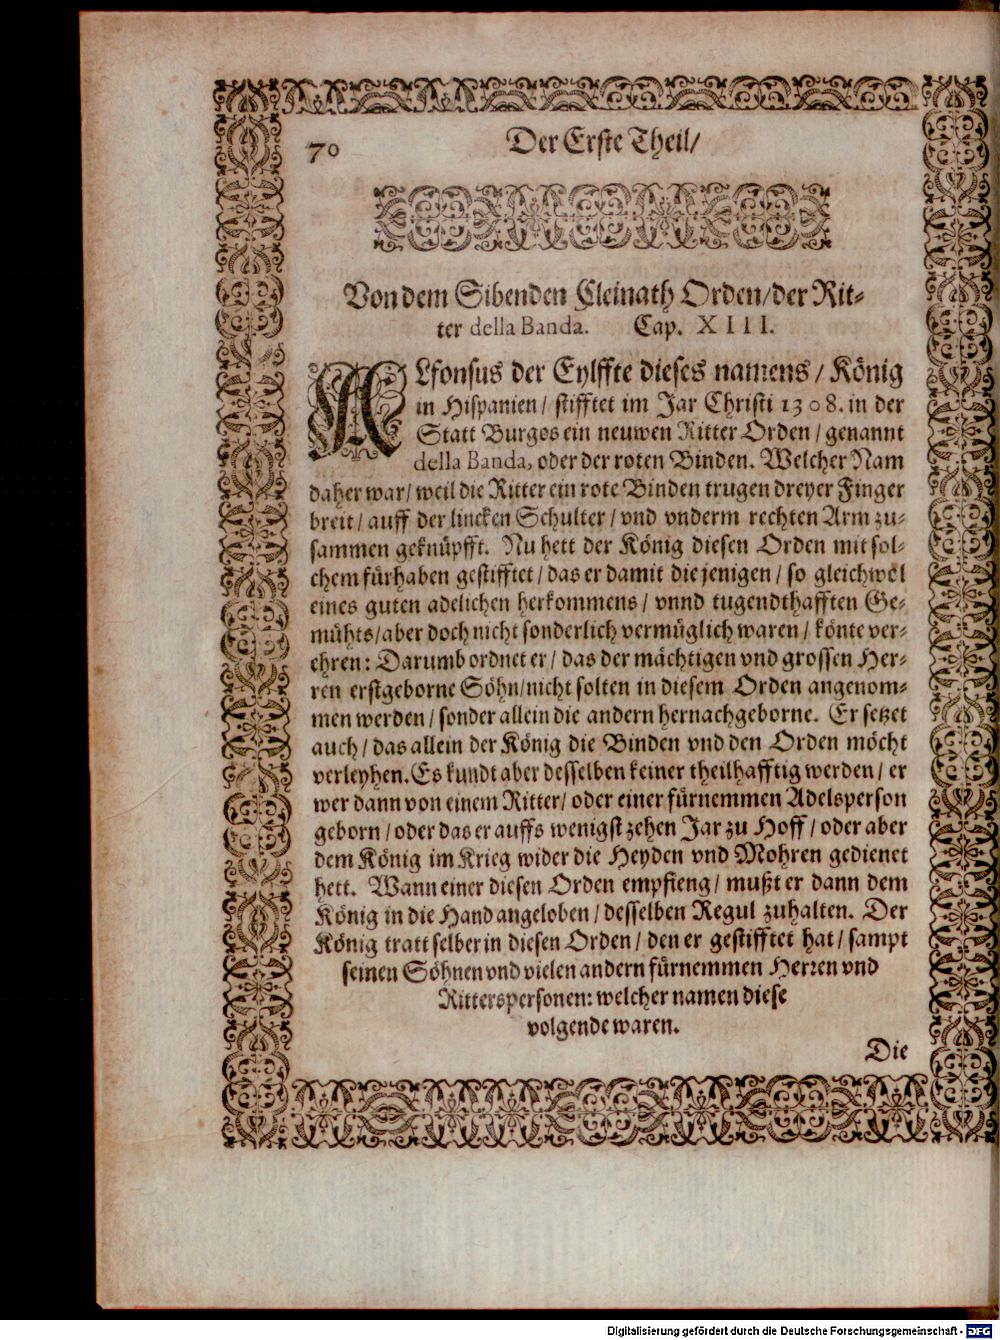 70
Der Erste Theil/
Von dem Sibenden Cleinath Orden/der Rit-
ter della Banda. Cap. XIII.
ALfonsus der Eylffte dieses namens / König
in Hispanien / stifftet im Jar Christi 1308. in der
Statt Burgos ein neuwen Ritter Orden / genannt
della Banda, oder der roten Binden. Welcher Nam
daher war / weil die Ritter ein rote Binden trugen dreyer Finger
breit / auff der lincken Schulter / vnd vnderm rechten Arm zu-
sammen geknüpfft. Nu hett der König diesen Orden mit sol-
chem fürhaben gestifftet / das er damit die jenigen / so gleichwol
eines guten adelichen herkommens / vnnd tugendthafften Ge-
mühts / aber doch nicht sonderlich vermüglich waren / könte ver-
ehren: Darumb ordnet er / das der mächtigen vnd grossen Her-
ren erstgeborne Söhn / nicht solten in diesem Orden angenom-
men werden / sonder allein die andern hernachgeborne. Er setzet
auch / das allein der König die Binden vnd den Orden möcht
verleyhen. Es kundt aber desselben keiner theilhafftig werden / er
wer dann von einem Ritter / oder einer fürnemmen Adelsperson
geborn / oder das er auffs wenigst zehen Jar zu Hoff / oder aber
dem König im Krieg wider die Heyden vnd Mohren gedienet
hett. Wann einer diesen Orden empfieng / mußt er dann dem
König in die Hand angeloben / desselben Regul zuhalten. Der
König tratt selber in diesen Orden / den er gestifftet hat / sampt
seinen Söhnen vnd vielen andern fürnemmen Herren vnd
Ritterspersonen: welcher namen diese
volgende waren.
Die
Digitalisierung gefördert durch die Deutsche Forschungsgemeinschaft - DFG